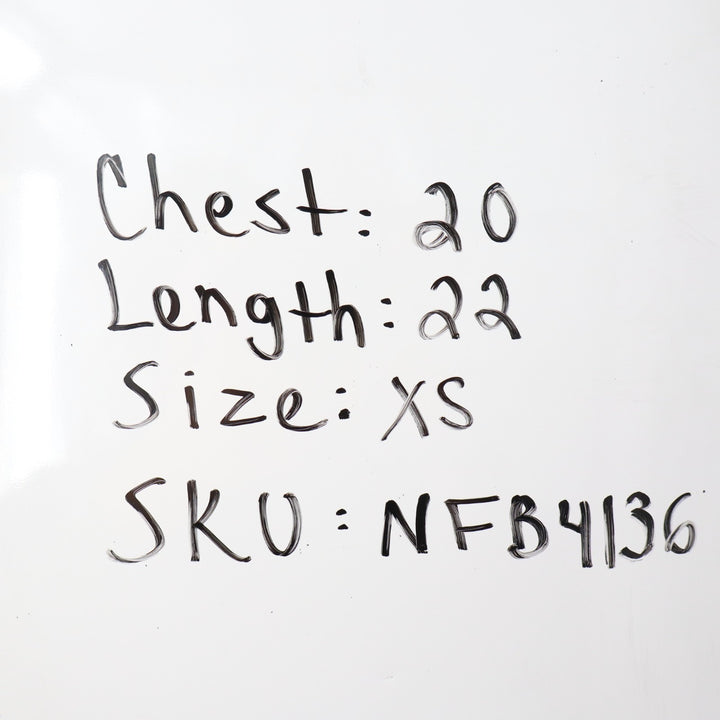 Chest: 20
Length: 22
Size: XS
SKU: NFB4136